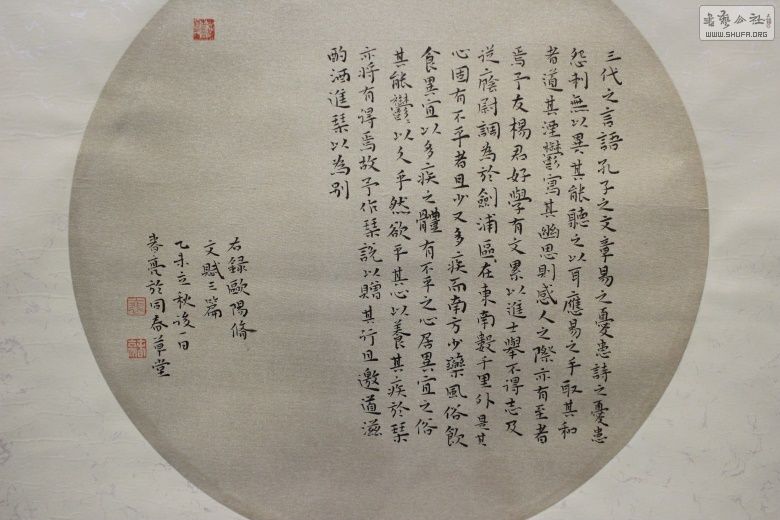 三代之言語孔子之文章易之憂患詩之憂患
怨刺無以異其能聽之以耳應易之手取其和
者道其湮鬱寫其幽思則感人之際亦有至者
焉予友楊君好學有文累以進士舉不得志及
從廕尉調為於劍浦區在東南數千里外是其
心固有不平者且少又多疾而南方少藥風俗飲
食異宜以多疾之體有不平之心居異宜之俗
其能鬱以久乎然欲平其心以養其疾於琴
亦將有得焉故予作琴說以贈其行且邀道滋
酌酒進琴以為別
右錄歐陽脩
文賦三篇
乙未立秋後一日
春亮於同春草堂
書藝公社
WWW.SHUFA.ORG